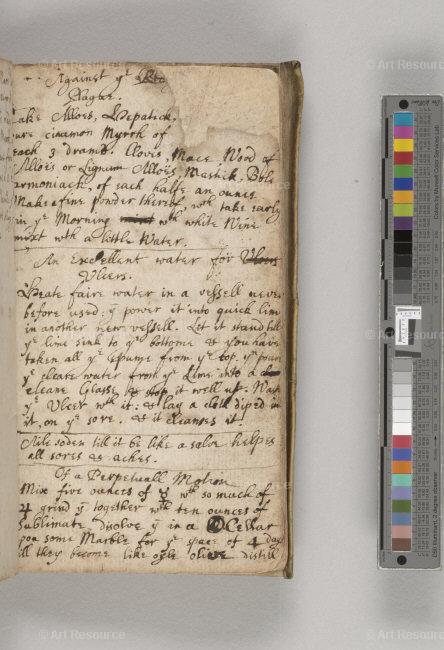 Against yᵉ
Plague.
Take Alloës, Hepatick,
pure cinamon Myrrh of
each 3 drams. Cloves, Mace, Wood of
Alloës or Lignum Alloës, Mastick, Bole
armoniack, of each halfe an ounce.
Make a fine powder thereof, wᶜʰ take early
in yᵉ Morning wᵗʰ white Wine
mixt wth a little Water.
An Excellent water for
Vlcers.
Heate faire water in a vessell never
before used; power it into quick lime
in another new vessell. Let it stand till
yᵉ lime sink to yᵉ bottome & you have
taken all yᵉ spume from yᵉ top. yⁿ pour
yᵉ cleare water from yᵉ Lime into a
cleane Glasse & stop it well up. Wash
yᵉ Vlcer wᵗʰ it: & lay a cloth diped in
it, on yᵉ sore. & it cleanses it.
soden till it be like a salve helpes
all sores & aches.
Of a Perpetuall Motion
Mix five ounces of ☿ wᵗʰ so much of
♃ grind yᵐ together wᵗʰ ten ounces of
Sublimate disolve yᵐ in a Cellar
upon some Marble for yᵉ space of 4 days
till they become like oyle olive distill
© Art Resource
© Art Resource
© Art Resource
© Art Resource
© Art Resource